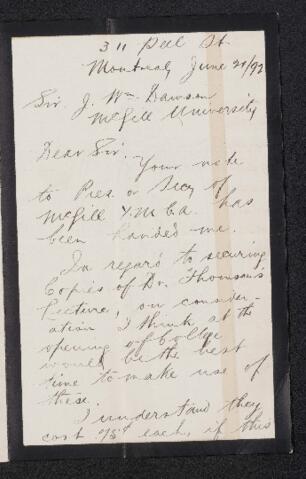 311 Peel St.
Montreal, June 21/92
Sir. J. Wm Dawson
McGill University
Dear Sir.
Your note
to Pres. or Secy of
McGill Y.M.C.a. has
been handed me.
In regard to securing
Copies of Dr. Thomson's
Lecture, on consider-
ation I think at the
opening of College
would be the best
time to make use of
these.
I understand they
cost each, if this